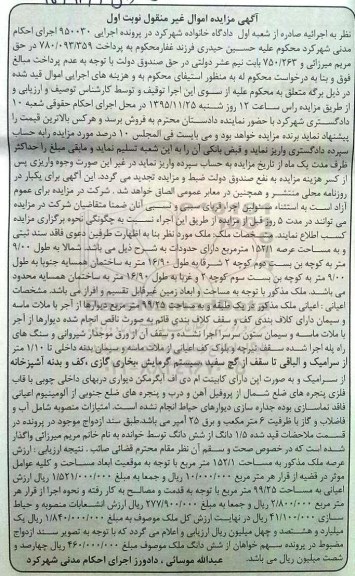 آگهی مزایده اموال غیر منقول نوبت اول
نظر به اجرائیه صادره از شعبه اول دادگاه خانواده شهرکرد در پرونده اجرای ۹۵۰۰۳۰ اجرای احکام
مدنی شهرکرد محکوم علیه حسین حیدری فرزند غفار محکوم به پرداخت ۷۸۰/۰۹۳/۳۵۹ در حق
مریم میرزائی و ۷۵۰/۲۶۳ بابت نیم عشر دولتی در حق صندوق دولت با توجه به عدم پرداخت مبالغ
فوق و بنا به درخواست محکوم له به منظور استیفای محکوم به و هزینه های اجرایی اموال قید شده
در ذیل برگه متعلق به محکوم علیه از سوی این اجرا توقیف و توسط کارشناس توصیف و ارزیابی و
از طریق مزایده راس ساعت ۱۲ روز شنبه ۱۳۹۵/۱۱/۲۵ در محل اجرای احکام حقوقی شعبه ۱۰
دادگستری شهرکرد با حضور نماینده دادستان محترم به فروش برسد و هرکس بالاترین قیمت را
پیشنهاد نماید برنده مزایده خواهد بود و می بایست فی المجلس ۱۰ درصد مورد مزایده را به حساب
سپرده دادگستری واریز نماید و قبض بانکی آن را به این شعبه تسلیم نماید و مابقی مبلغ را حداکثر
ظرف مدت یک ماه از تاریخ مزایده به حساب سپرده واریز نماید در غیر این صورت وجوه واریزی پس
از کسر هزینه مزایده به نفع صندوق دولت ضبط و مزایده تجدید می گردد. این آگهی برای یکبار در
روزنامه محلی منتشر و همچنین در معابر عمومی الصاق خواهد شد. شرکت در مزایده برای عموم
آزاد است به استثناء مسئولین اجرا، اقربای سببی و نسبی آنان ضمنا متقاضیان شرکت در مزایده
می توانند در مدت ۵ روز قبل از مزایده از طریق این اجراء نسبت به چگونگی نحوه برگزاری مزایده
کسب اطلاع نمایند. مشخصات ملک: ملک مورد نظر بنا به اظهارت طرفین دعوی فاقد سند ثبتی
و به مساحت عرصه ۱۵۲/۱ مترمربع دارای حدودات به شرح ذیل می باشد. شمالا به طول ۹/۰۰
متر به کوچه بن بست دوم کوچه ۲ شرقا به طول ۱۶/۹۰ متر به ساختمان همسایه جنوبا به طول
۹/۰۰ متر به کوچه بن بست سوم کوچه ۲ و غربا به طول ۱۶/۹۰ متر به ساختمان همسایه محدود
می باشد. ملک مذکور با توجه به مساحت و ابعاد زمین غیرقابل تقسیم و افراز می باشد. مشخصات
اعیانی : اعیانی ملک مذکور در یک طبقه و به مساحت ۹۹/۲۵ متر مربع دیوارها از آجر با ملات ماسه
و سیمان دارای کلاف بندی کف و سقف کلاف بندی قائم به صورت ناقص انجام شده دیوارها از آجر
با ملات ماسه و سیمان ستون سرسرا اجرا نشده و سقف آن از ورق موجدار شیروانی و سنگ های
راه پله اجرا شده سقف تیرچه و بلوک کف اعیانی از ملات ماسه و سیمان بدنه داخلی تا ۱/۱۰ متر
از سرامیک و الباقی تا سقف از گچ سفید سیستم گرمایش بخاری گازی ،کف و بدنه آشپزخانه
از سرامیک و به صورت اپن دارای کابینت ام دی اف آبگرمکن دیواری دربهای داخلی چوبی با قاب
فلزی پنجره های ضلع شمال از پروفیل آهن و درب و پنجره های ضلع جنوبی از آلومینیوم اعیانی
فاقد نماسازی بوده جداره سازی دیوارهای حیاط انجام نشده است. امتیازات منصوبه شامل آب و
فاضلاب و گاز با ظرفیت ۶ متر مکعب و برق ۲۵ آمپر می باشد طبق سند ازدواج موجود در پرونده در
قسمت ملاحضات قید شده ۱/۵ دانگ از شش دانگ توسط خوانده به نام خانم مریم میرزائی واگذار
شده است که در خصوص صحت و سقم آن نظر مقام محترم قضائی صائب . نتیجه ارزیابی : ارزش
عرصه ملک مذکور به مساحت ۱۵۲/۱ متر مربع با توجه به موقعیت ابعاد مساحت و کلیه عوامل
موثر در قضیه از قرار هر متر مربع ۱۰/۰۰۰/۰۰۰ ریال و جمعا به مبلغ ۱/۵۲۱/۰۰۰/۰۰۰ ریال ارزش
اعیانی به مساحت ۹۹/۲۵ متر مربع با توجه به قدمت و مصالح به کار رفته و نحوه اجرا از قرار هر
متر مربع ۲/۸۰۰/۰۰۰ ریال و جمعا به مبلغ ۲۷۷/۹۰۰/۰۰۰ ریال ارزش انشعابات منصوبه و حیاط
سازی ۴۱/۱۰۰/۰۰۰ ریال در نهایت ارزش کل ملک موصوف به مبلغ ۱/۸۴۰/۰۰۰/۰۰۰ ریال یک
میلیارد و هشتصد و چهل میلیون ریال ارزیابی و اعلام می گردد که با توجه به تصویر سند ازدواج
مضبوط در پرونده سهم خواهان از شش دانگ ملک موصوف مبلغ ۴۶۰/۰۰۰/۰۰۰ ریال چهارصد و
شصت میلیون ریال می باشد. عبدالله موسائی ، دادورز اجرای احکام مدنی شهرکرد